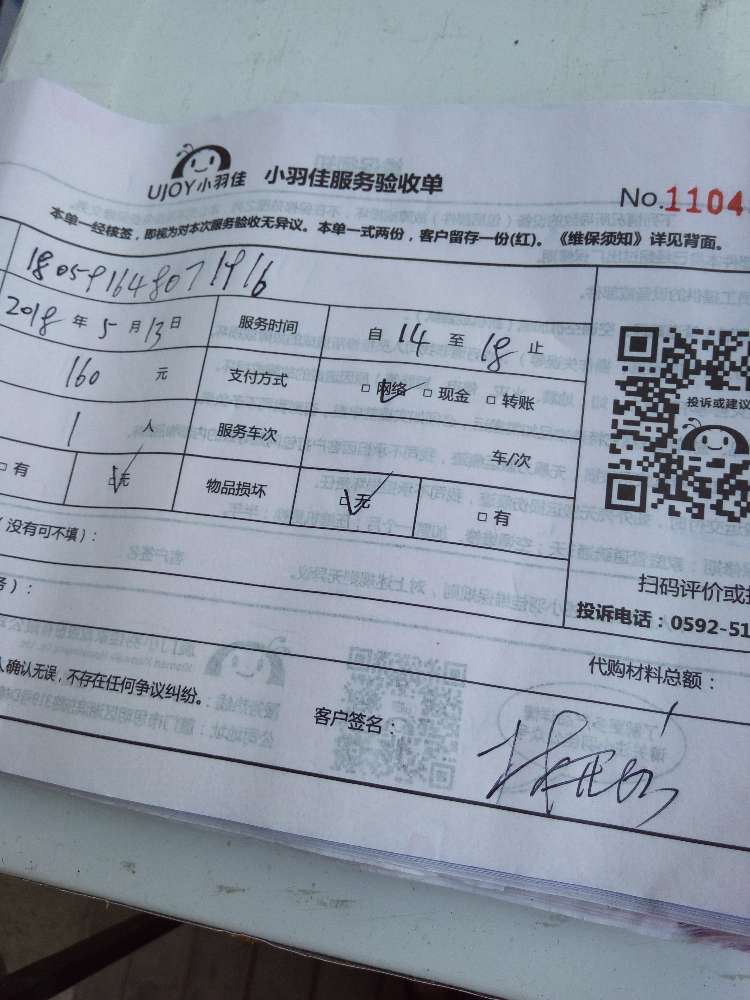 UJOY小羽佳 小羽佳服务验收单 No.1104
本单一经核签，即视为对本次服务验收无异议。本单一式两份，客户留存一份(红)。《维保须知》详见背面。
180591648071916
2018年5月13日 服务时间 自14至18止
160元 支付方式 □网络 □现金 □转账
投诉或建议
1人 服务车次 车/次
□有 □无 物品损坏 □无 □有
（没有可不填）：
扫码评价或
务）：
投诉电话：0592-51
代购材料总额：
人确认无误，不存在任何争议纠纷。
客户签名：